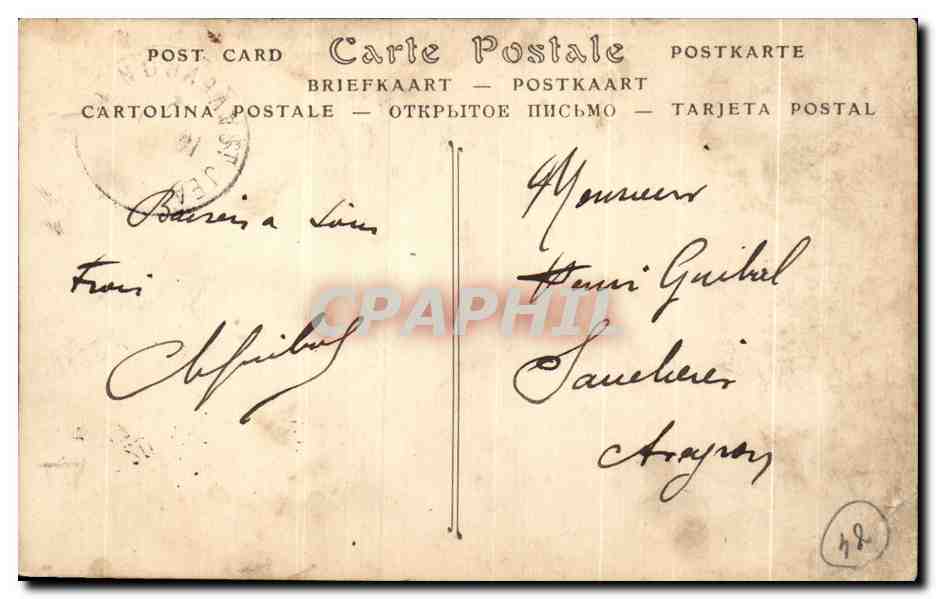 POST CARD Carte Postale POSTKARTE
BRIEFKAART — POSTKAART
CARTOLINA POSTALE — ОТКРЫТОЕ ПИСЬМО — TARJETA POSTAL
ST JEA
Baisers a tous
Trois
Guibal
Monsieur
Henri Guibal
Sauclières
Aveyron
CPAPHIL
42